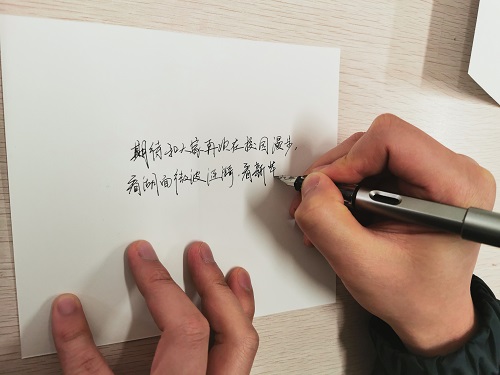 期待和大家再次在校园漫步，
看湖面微波涟漪，看新